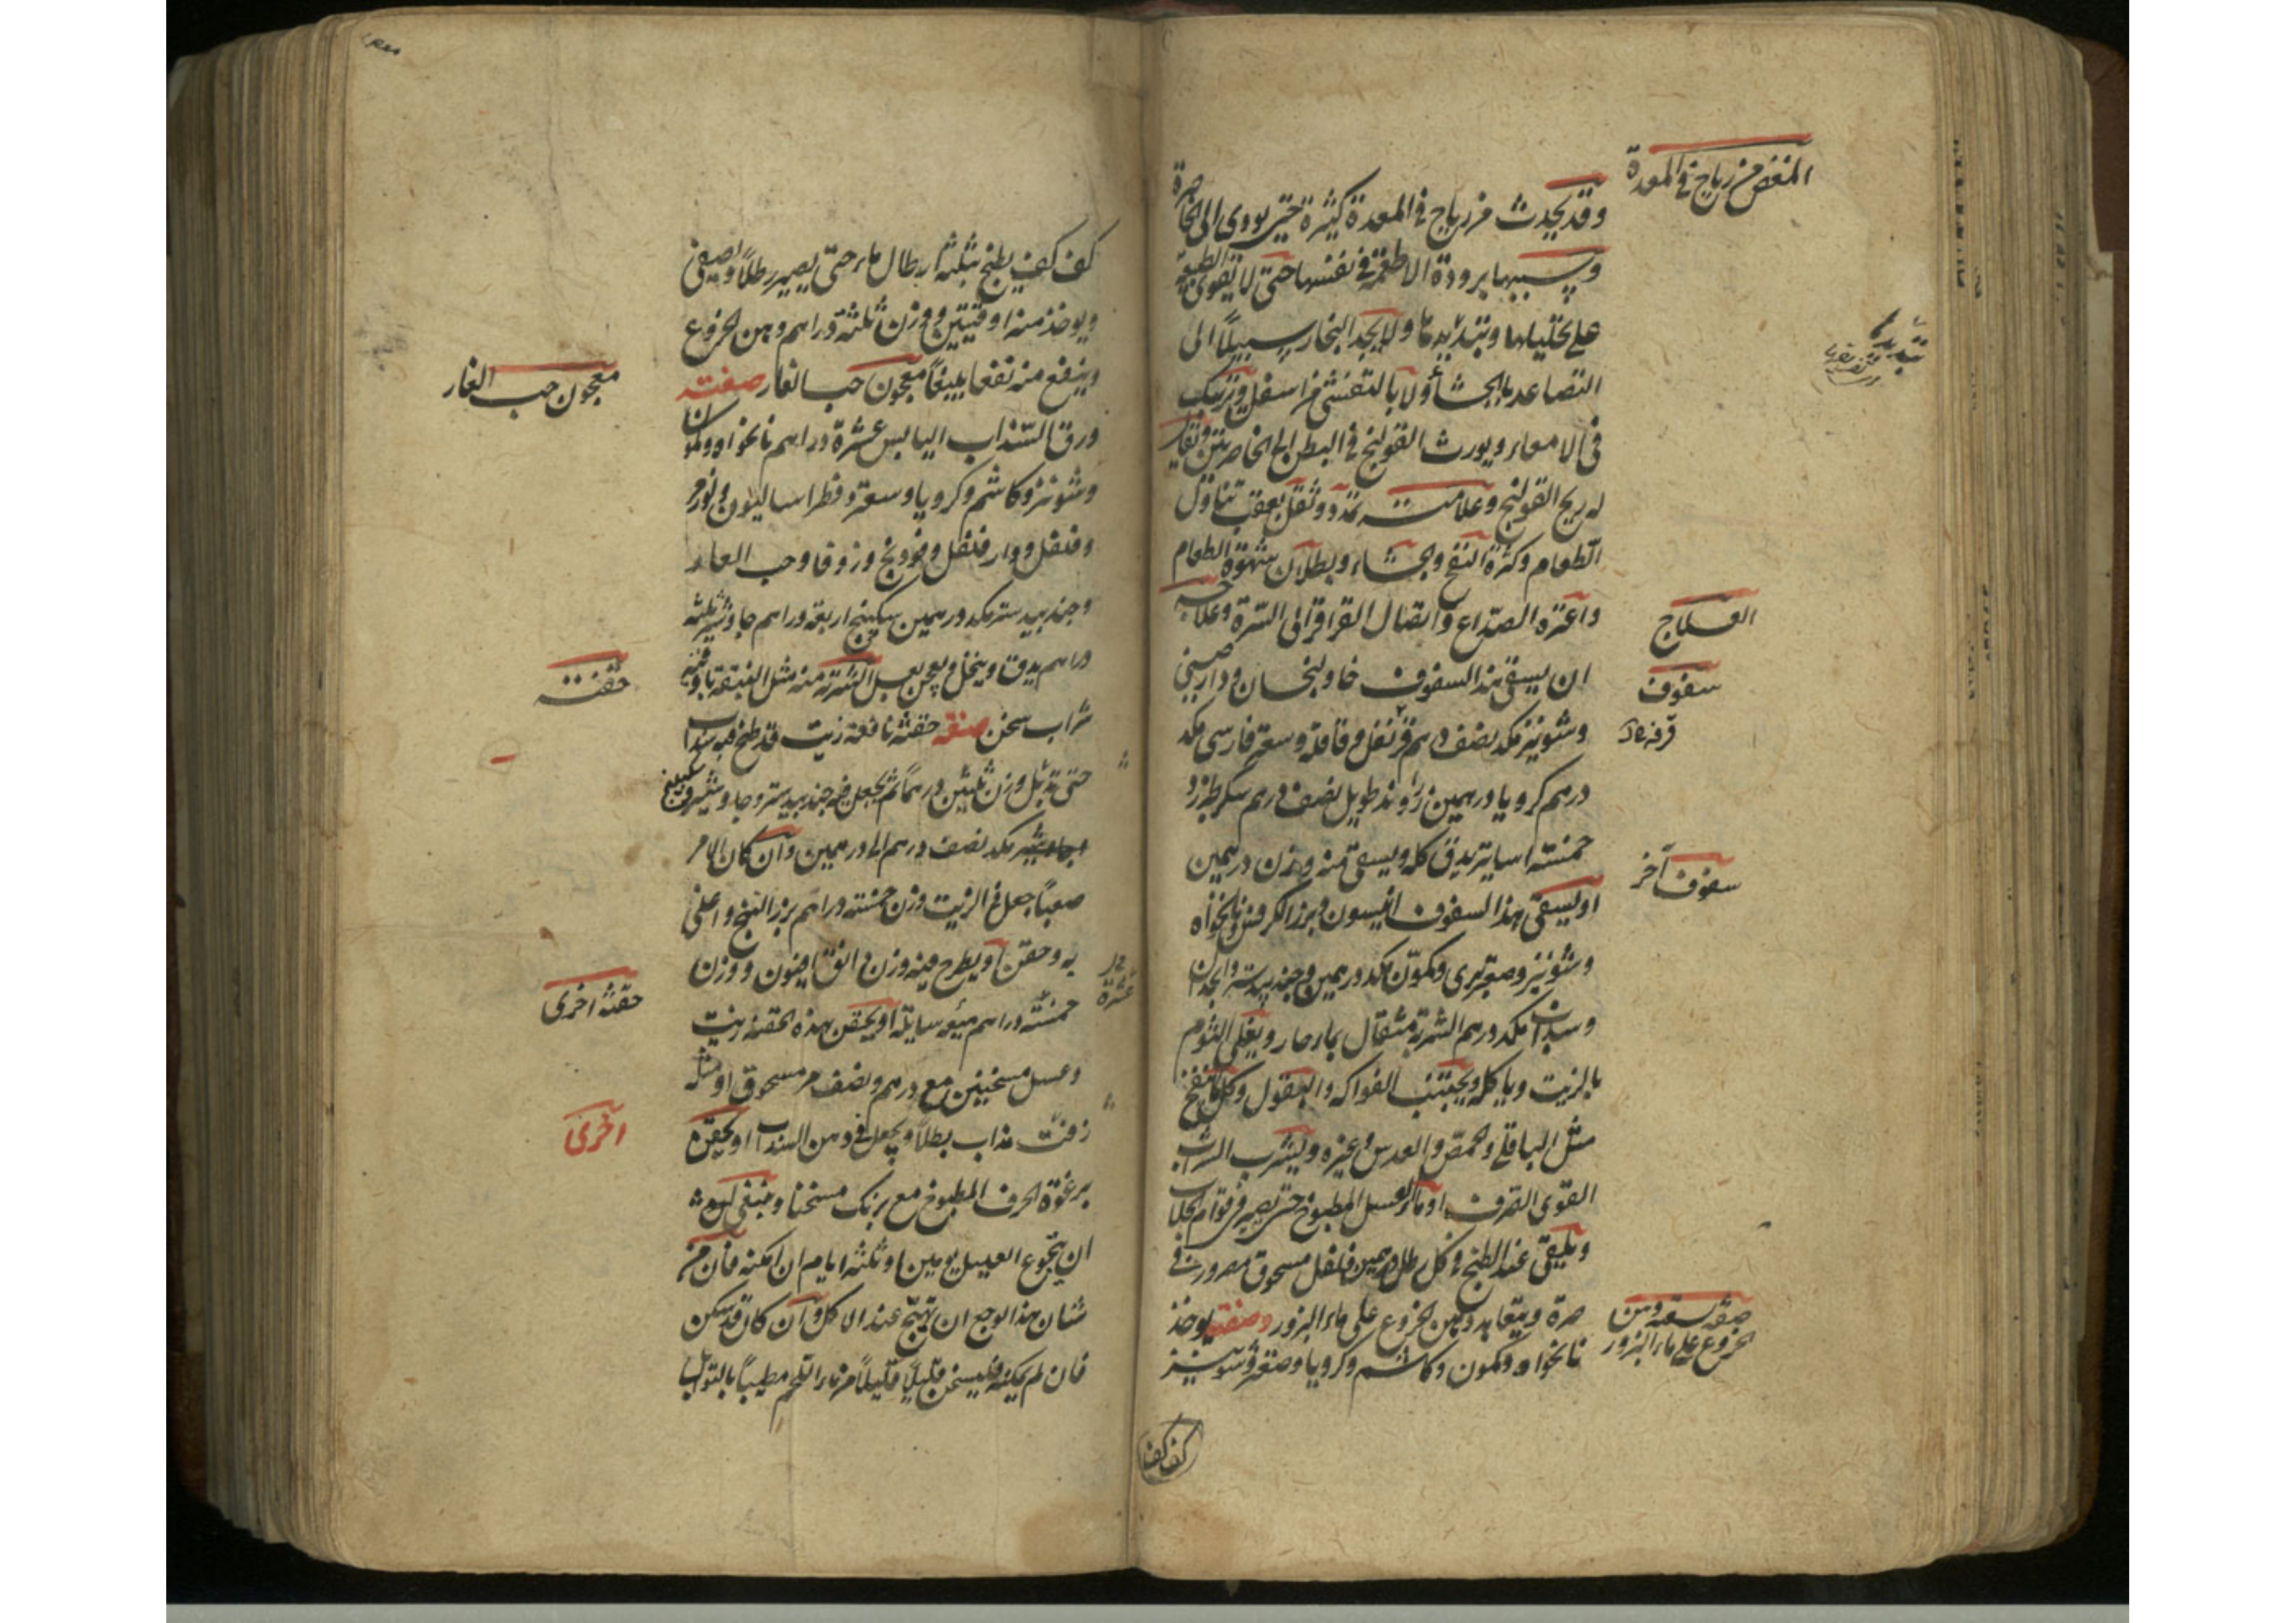 المغص من رياح في المعدة
وقد يحدث من رياح في المعدة كثيرة حتى يودى الى الخاصرة
وسببها برودة الاطعمة في نفسها حتى لا تقوى الطبيعة
على تحليلها وتبديدها ولا يجد البخار سبيلاً الى
تبديد
التصاعد بالجشأ ولا بالتفشى من اسفل وترتبك
في الامعاء ويورث القولنج في البطن الى الخاصرتين ويقال
له ريح القولنج وعلامته تمدد وثقل بعقب تناول
الطعام وكثرة النفخ والجشاء وبطلان شهوة الطعام
واعترة الصداع واتصال القراقر الى السرة وعلاجه
العلاج
ان يسقى هذا السفوف خاولنجان ودارصيني
سفوف
وشونيز مكد نصف درهم قرنفل وقاقلة وسعتر فارسى مكد
قرفه
درهم كرويا درهمين زراوند طويل نصف درهم سكر طبرزد
خمسة اساتير يدق كله ويسقى منه وزن درهمين
سفوف آخر
او يسقى هذا السفوف انيسون وبزر الكرفس ونانخواه
وشونيز وصعتر برى وكمون مكد درهمين وجندبيدستر وانجدان
وسداب مكد درهم الشربة مثقال بماء حار ويغلى الثوم
بالزيت وياكله ويجتنب الفواكه والبقول وكل ما ينفخ
مثل الباقلى والحمص والعدس وغيره وليشرب الشراب
القوى الصرف او ماء العسل المطبوخ حتى يصير في قوام الجلاب
ويلقى عند الطبخ في كل رطل درهمين فلفل مسحوق مصرور في
صرة ويتعاهد دهن الخروع على ماء البزور وصفته يوخذ
صفة سقيه دهن
الخروع على ماء البزور
نانخواه وكمون وكاشم وكرويا وصعتر وشونيز
كف كف
كف كف يطبخ بثلثة ارطال ماء حتى يصير رطلاً واصفى
ويوخذ منه اوقيتين ووزن ثلثة دراهم دهن الخروع
وينفع منه نفعا بليغاً معجون حب الغار صفته
معجون حب الغار
ورق السذاب اليابس عشرة دراهم نانخواه وكمون
وشونيز وكاشم وكرويا وسعتر وفطراساليون ولوز مر
وفلفل ودار فلفل وفودنج وزوفا وحب الغار
وجندبيدستر مكد درهمين سكبينج اربعة دراهم جاوشير ثلثه
دراهم يدق وينخل ويعجن بعسل الشربة منه مثل البندقة باوقية
حقنة
شراب سخن صفة حقنة نافعة زيت قد طبخ فيه سذاب
حتى تذبل وزن ثلثين درهماً ثم يجعل فيه جندبيدستر وجاوشير وسكبينج
مكد نصف درهم الى درهمين وان كان الامر
صعباً جعل في الزيت وزن خمسة دراهم بزر البنج واغلى
به وحقن او يطرح فيه وزن دانق افيون ووزن
خمسة دراهم ميعه سايلة او يحقن بهذه الحقنة زيت
حقنة اخرى
عشرة
وعسل مسخنين مع درهم ونصف مر مسحوق او مثله
زفت مذاب بطلاً ويجعل في دهن السذاب او يحقن
اخرى
برغوة الحرف المطبوخ مع برنك مسخنا وينبغى
ان يتجوع العليل يومين او ثلثة ايام ان امكنه فان من
شان هذا الوجع ان تهيج عند الاكل وان كان قد سكن
فان لم يمكنه فليسخن قليلاً قليلاً من ماء اللحم مطيباً بالتوابل